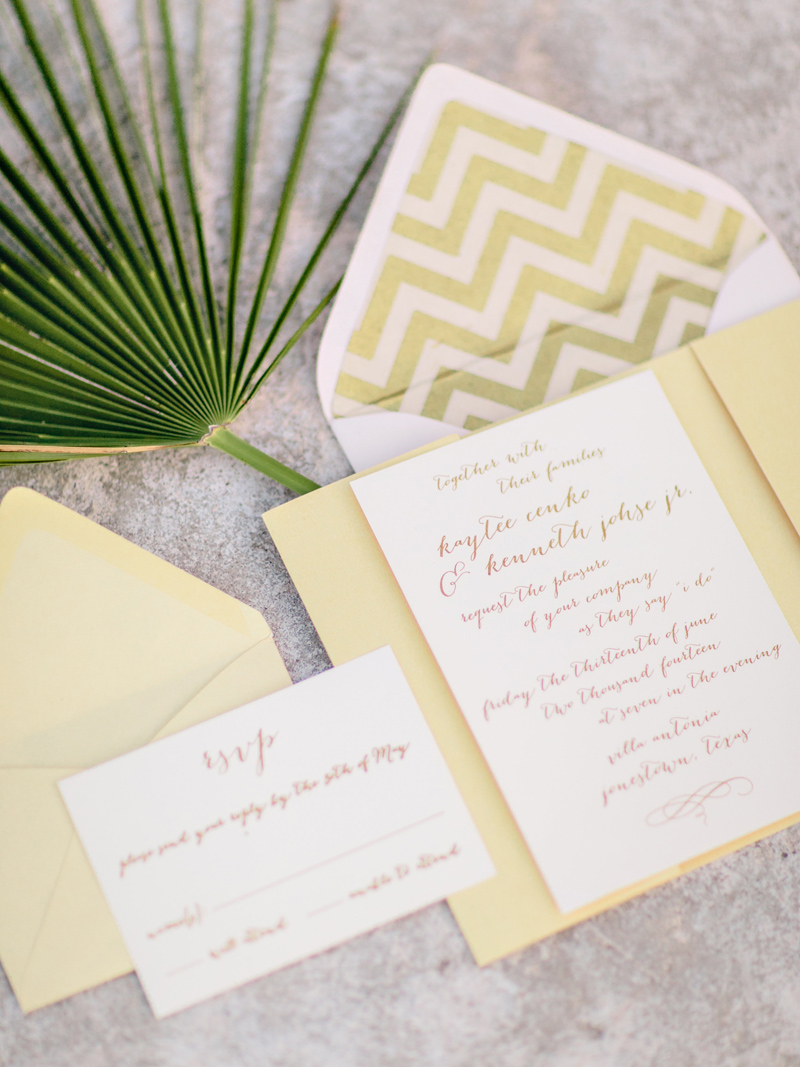 together with
their families
kaytee cenko
& kenneth johse jr.
request the pleasure
of your company
as they say "i do"
friday the thirteenth of june
two thousand fourteen
at seven in the evening
villa antonia
jonestown, texas
rsvp
please send your reply by the 5th of May
name(s)
will attend unable to attend